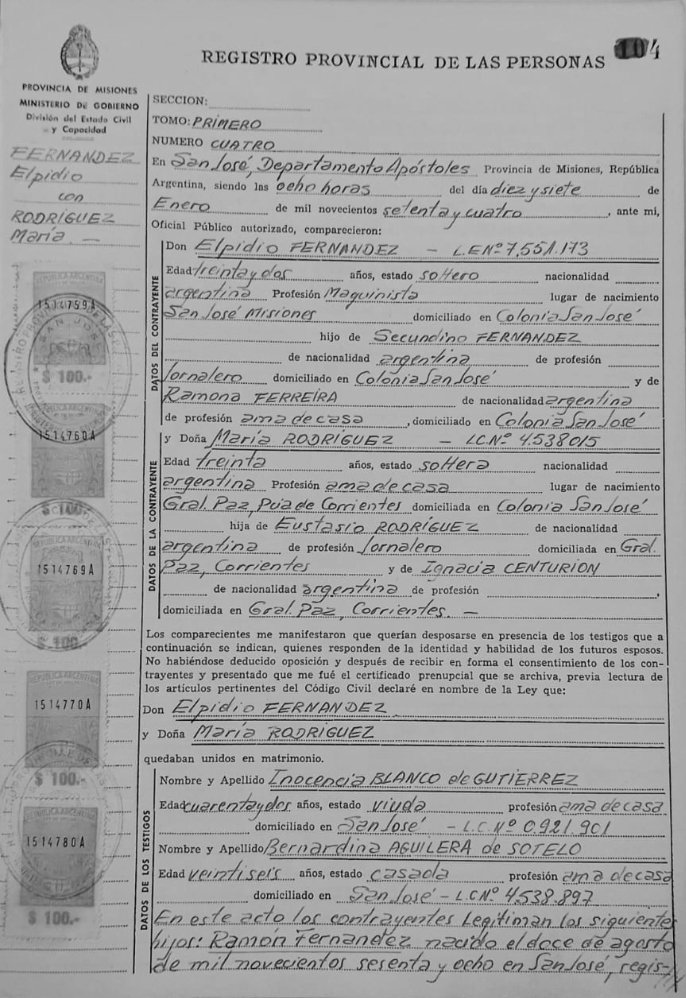 REGISTRO PROVINCIAL DE LAS PERSONAS
4
PROVINCIA DE MISIONES
MINISTERIO DE GOBIERNO
División del Estado Civil
y Capacidad
FERNANDEZ
Elpidio
con
RODRÍGUEZ
María. —
1514759A
$ 100.-
1514760A
$ 100.-
1514769A
$ 100.-
1514770A
$ 100.-
1514780A
$ 100.-
SECCION:
TOMO: PRIMERO
NUMERO CUATRO
En San José, Departamento Apóstoles Provincia de Misiones, República
Argentina, siendo las ocho horas del día diez y siete de
Enero de mil novecientos setenta y cuatro, ante mi,
Oficial Público autorizado, comparecieron:
DATOS DEL CONTRAYENTE
Don Elpidio FERNANDEZ — L.E.Nº 7.551.173
Edad treinta y dos años, estado soltero nacionalidad
argentina Profesión Maquinista lugar de nacimiento
San José Misiones domiciliado en Colonia San José
hijo de Secundino FERNANDEZ
de nacionalidad argentina de profesión
Jornalero domiciliado en Colonia San José y de
Ramona FERREIRA de nacionalidad argentina
de profesión ama de casa, domiciliado en Colonia San José
y Doña María RODRÍGUEZ — L.C.Nº 4.538.015
DATOS DE LA CONTRAYENTE
Edad treinta años, estado soltera nacionalidad
argentina Profesión ama de casa lugar de nacimiento
Gral. Paz, Pvia de Corrientes domiciliada en Colonia San José
hija de Eustasio RODRÍGUEZ de nacionalidad
argentina de profesión Jornalero domiciliada en Gral.
Paz, Corrientes y de Ignacia CENTURION
de nacionalidad argentina de profesión ,
domiciliada en Gral. Paz, Corrientes. —
Los comparecientes me manifestaron que querían desposarse en presencia de los testigos que a
continuación se indican, quienes responden de la identidad y habilidad de los futuros esposos.
No habiéndose deducido oposición y después de recibir en forma el consentimiento de los con-
trayentes y presentado que me fué el certificado prenupcial que se archiva, previa lectura de
los artículos pertinentes del Código Civil declaré en nombre de la Ley que:
Don Elpidio FERNANDEZ
y Doña María RODRIGUEZ
quedaban unidos en matrimonio.
DATOS DE LOS TESTIGOS
Nombre y Apellido Inocencia BLANCO de GUTIERREZ
Edad cuarenta y dos años, estado viuda profesión ama de casa
domiciliado en San José — L.C.Nº 0.921.901
Nombre y Apellido Bernardina AGUILERA de SOTELO
Edad veintiseis años, estado casada profesión ama de casa
domiciliado en San José - L.C.Nº 4.538.897
En este acto los contrayentes Legitiman los siguientes
hijos: Ramón Fernandez nacido el doce de agosto
de mil novecientos sesenta y ocho en San José, regis-